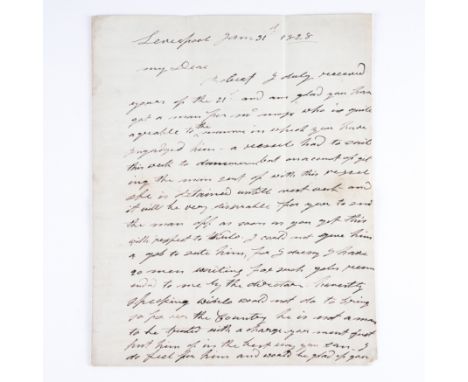 Leverpool Jany 31st 1828
my Dear
Robert I duly received
yours of the 21st and am glad you have
got a man for mr who is quite
agreable to the manner in which you have
engadged him - a vessel had to sail
this week to but on acount of get
ing the man sent of with this vessel
she is detained untill next week and
it will be very desirable for you to send
the man off as soon as you get this
with respect to I could not give him
a gob to sute him, for I dersay I have
20 men waiting for such gobs recom
ended to me by the directors Twenty
shilling would not do to bring
so far in the Country he is not a man
to be trusted with a charge you must just
put him of in the best way you can. I
do feel for him and would be glad if you